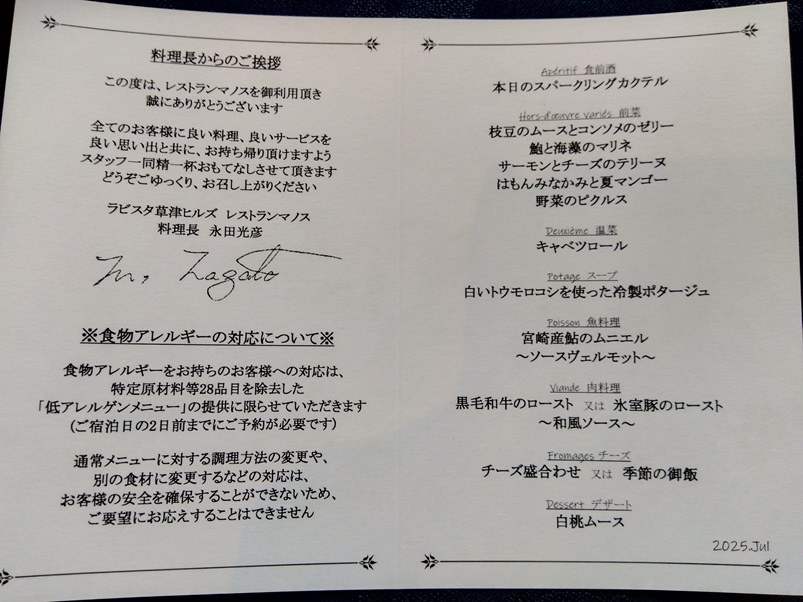 料理長からのご挨拶
この度は、レストランマノスを御利用頂き
誠にありがとうございます
全てのお客様に良い料理、良いサービスを
良い思い出と共に、お持ち帰り頂けますよう
スタッフ一同精一杯おもてなしさせて頂きます
どうぞごゆっくり、お召し上がりください
ラビスタ草津ヒルズ レストランマノス
料理長 永田光彦
M, Nagata
※食物アレルギーの対応について※
食物アレルギーをお持ちのお客様への対応は、
特定原材料等28品目を除去した
「低アレルゲンメニュー」の提供に限らせていただきます
(ご宿泊日の2日前までにご予約が必要です)
通常メニューに対する調理方法の変更や、
別の食材に変更するなどの対応は、
お客様の安全を確保することができないため、
ご要望にお応えすることはできません
Apéritif 食前酒
本日のスパークリングカクテル
Hors-d'œuvre variés 前菜
枝豆のムースとコンソメのゼリー
鮑と海藻のマリネ
サーモンとチーズのテリーヌ
はもんみなかみと夏マンゴー
野菜のピクルス
Deuxième 温菜
キャベツロール
Potage スープ
白いトウモロコシを使った冷製ポタージュ
Poisson 魚料理
宮崎産鮎のムニエル
～ソースヴェルモット～
Viande 肉料理
黒毛和牛のロースト 又は 氷室豚のロースト
～和風ソース～
Fromages チーズ
チーズ盛合わせ 又は 季節の御飯
Dessert デザート
白桃ムース
2025.Jul